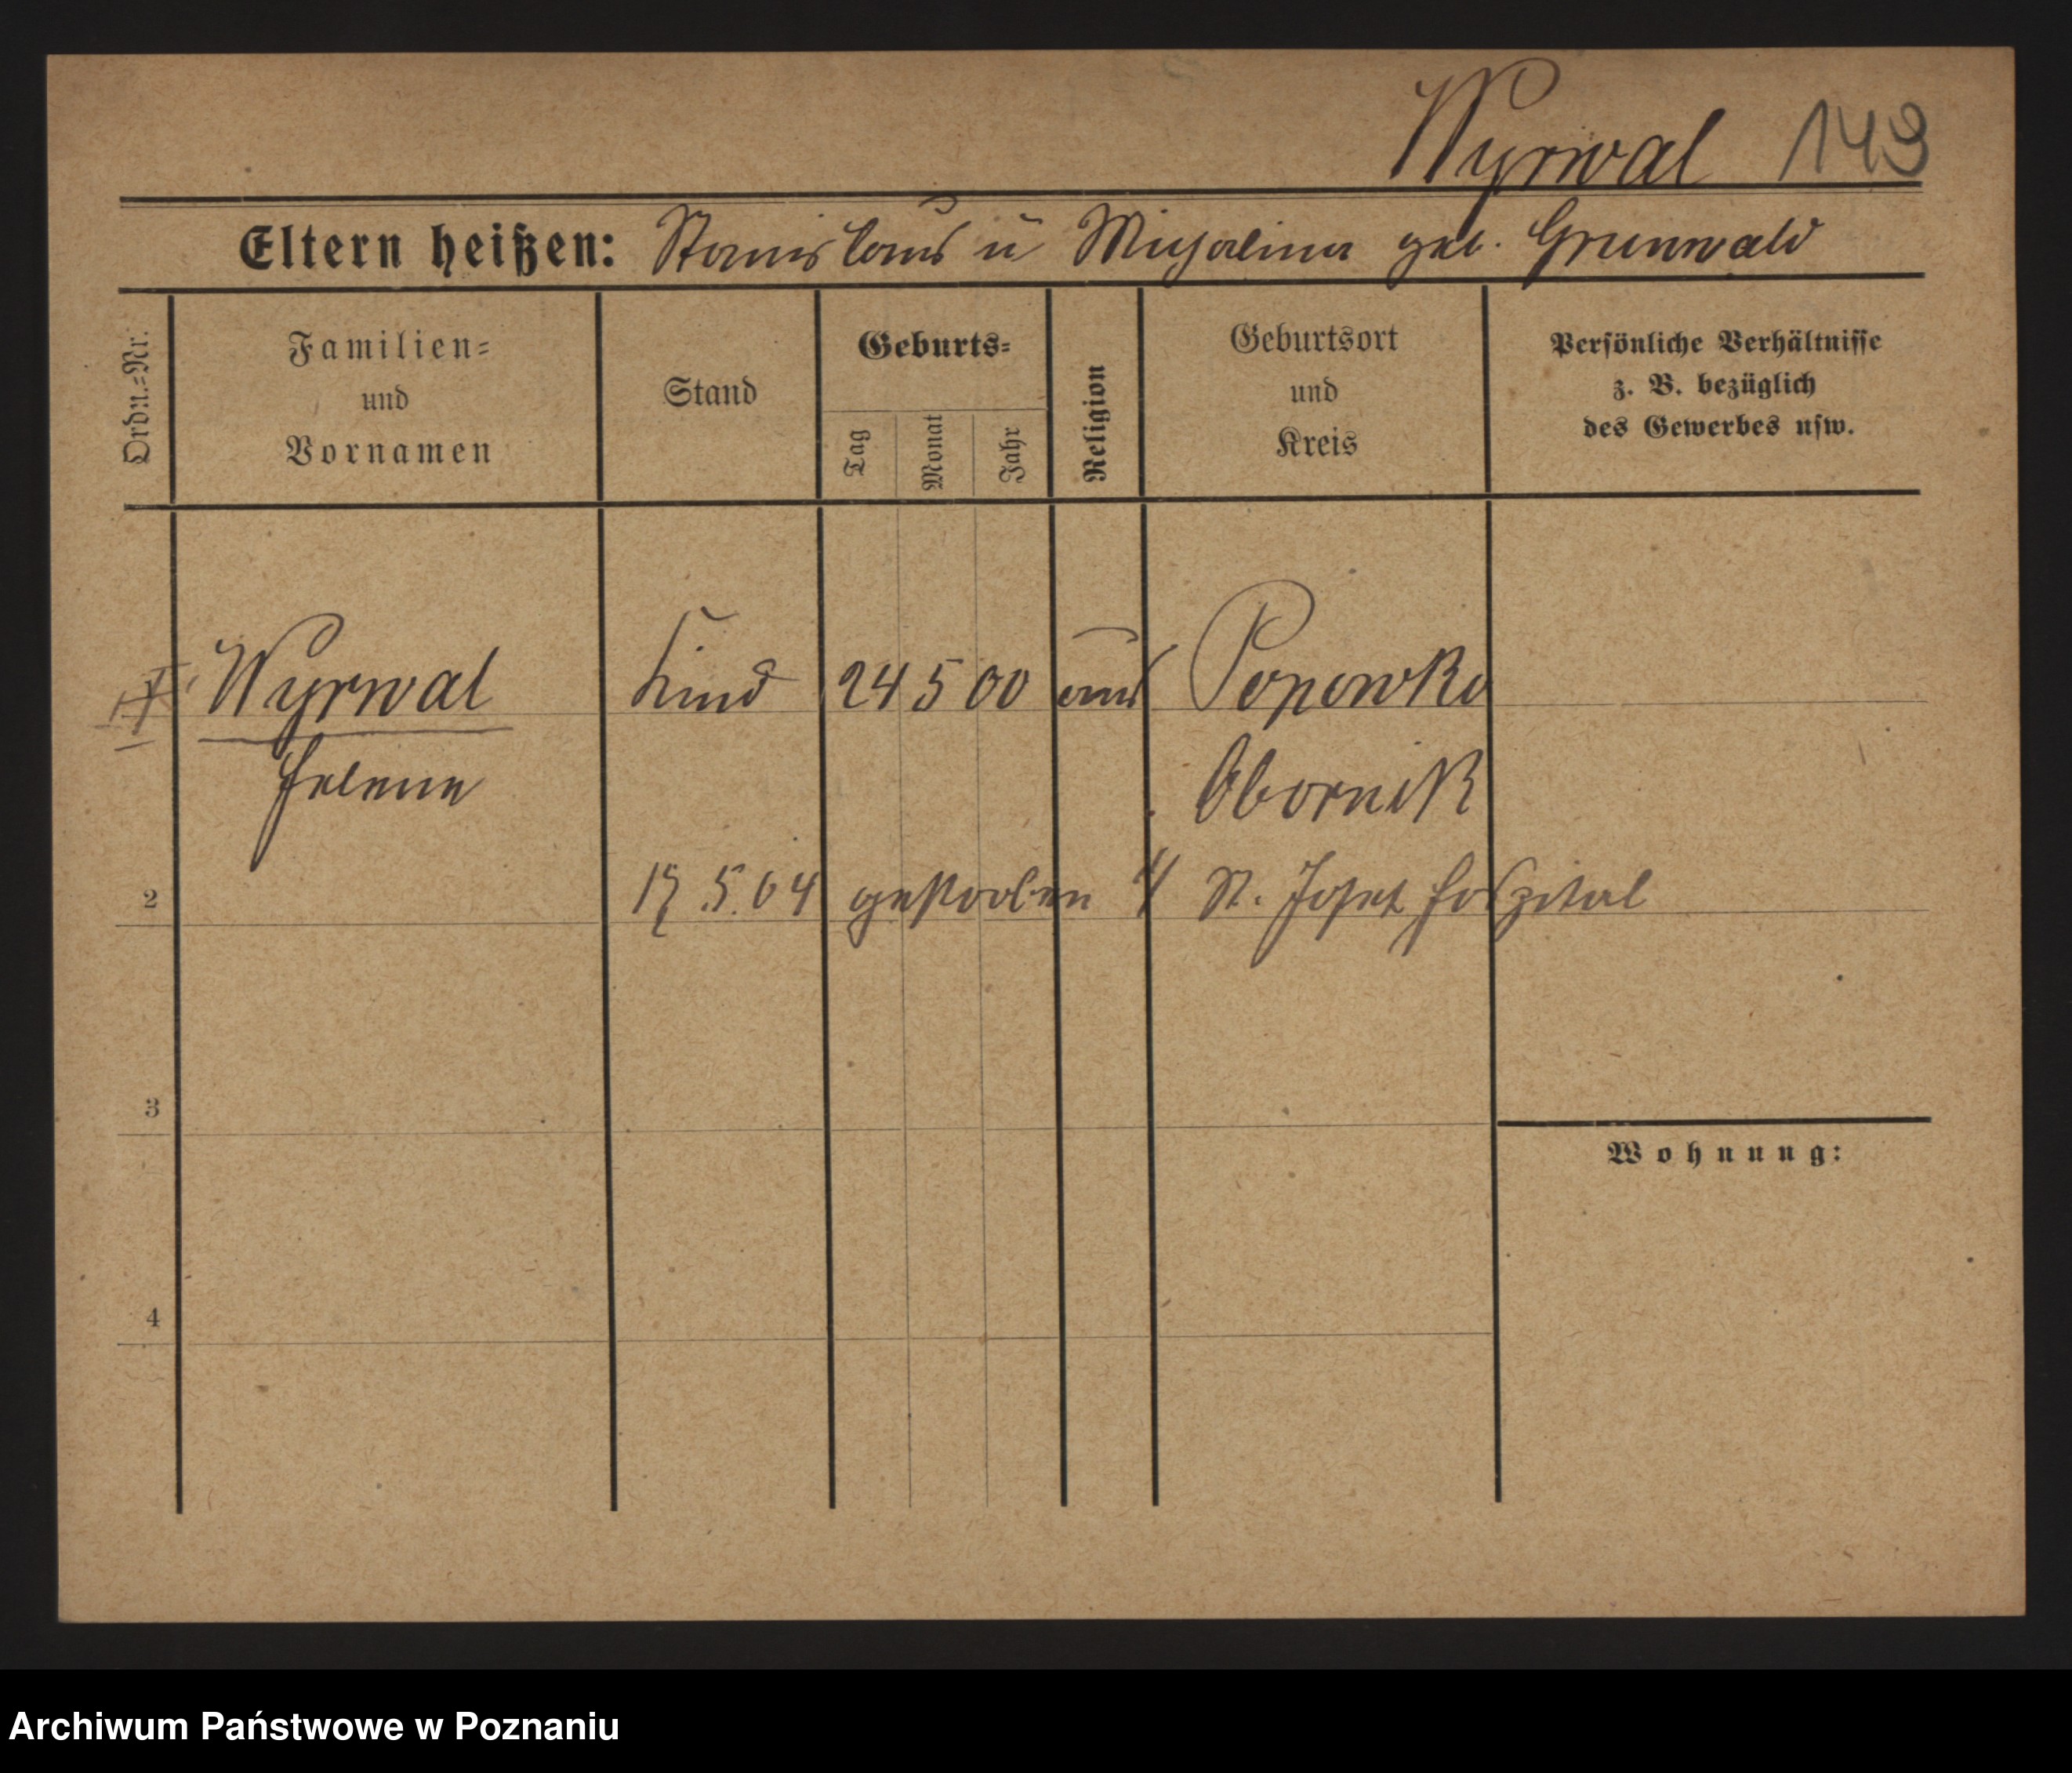 Wyrwal 149
Eltern heißen: Stanislaus u Michalina geb. Grunwald
Ordn.=Nr.
Familien=
und
Vornamen
Stand
Geburts=
Tag
Monat
Jahr
Religion
Geburtsort
und
Kreis
Persönliche Verhältnisse
z. B. bezüglich
des Gewerbes usw.
Wyrwal Kind 24 5 00 Popowko
Helene Obornik
2 5.04 gestorben St. Josef Hoszital
3
Wohnung:
4
Archiwum Państwowe w Poznaniu